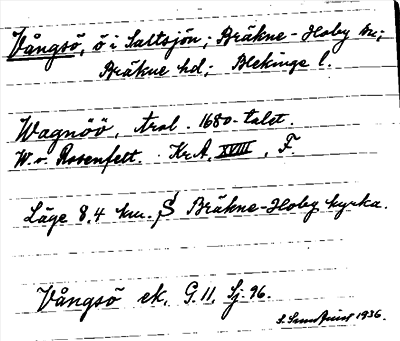 Vångsö, ö i Saltsjön; Bräkne-Hoby sn;
Bräkne hd; Blekinge l.
Wagnöö, Aral. 1680-talet.
W. v. Rosenfelt. Kr.A. XVIII, F.
Läge 8,4 km. S Bräkne-Hoby kyrka.
Vångsö ek. G. 11. Sj. 96.
1936.